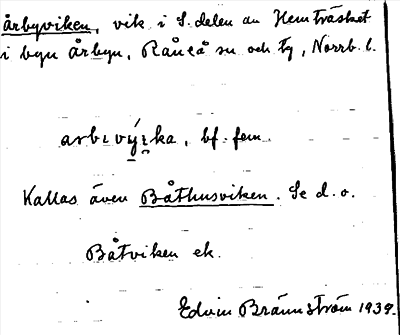 Årbyviken, vik i S. delen av Hemträsket
i byn Årbyn, Råneå sn och tg, Norrb. l.
arbɩvýɩ̯ka, bf. fem.
Kallas även Båthusviken. Se d. o.
Båtviken ek.
Edvin Brännström 1939.